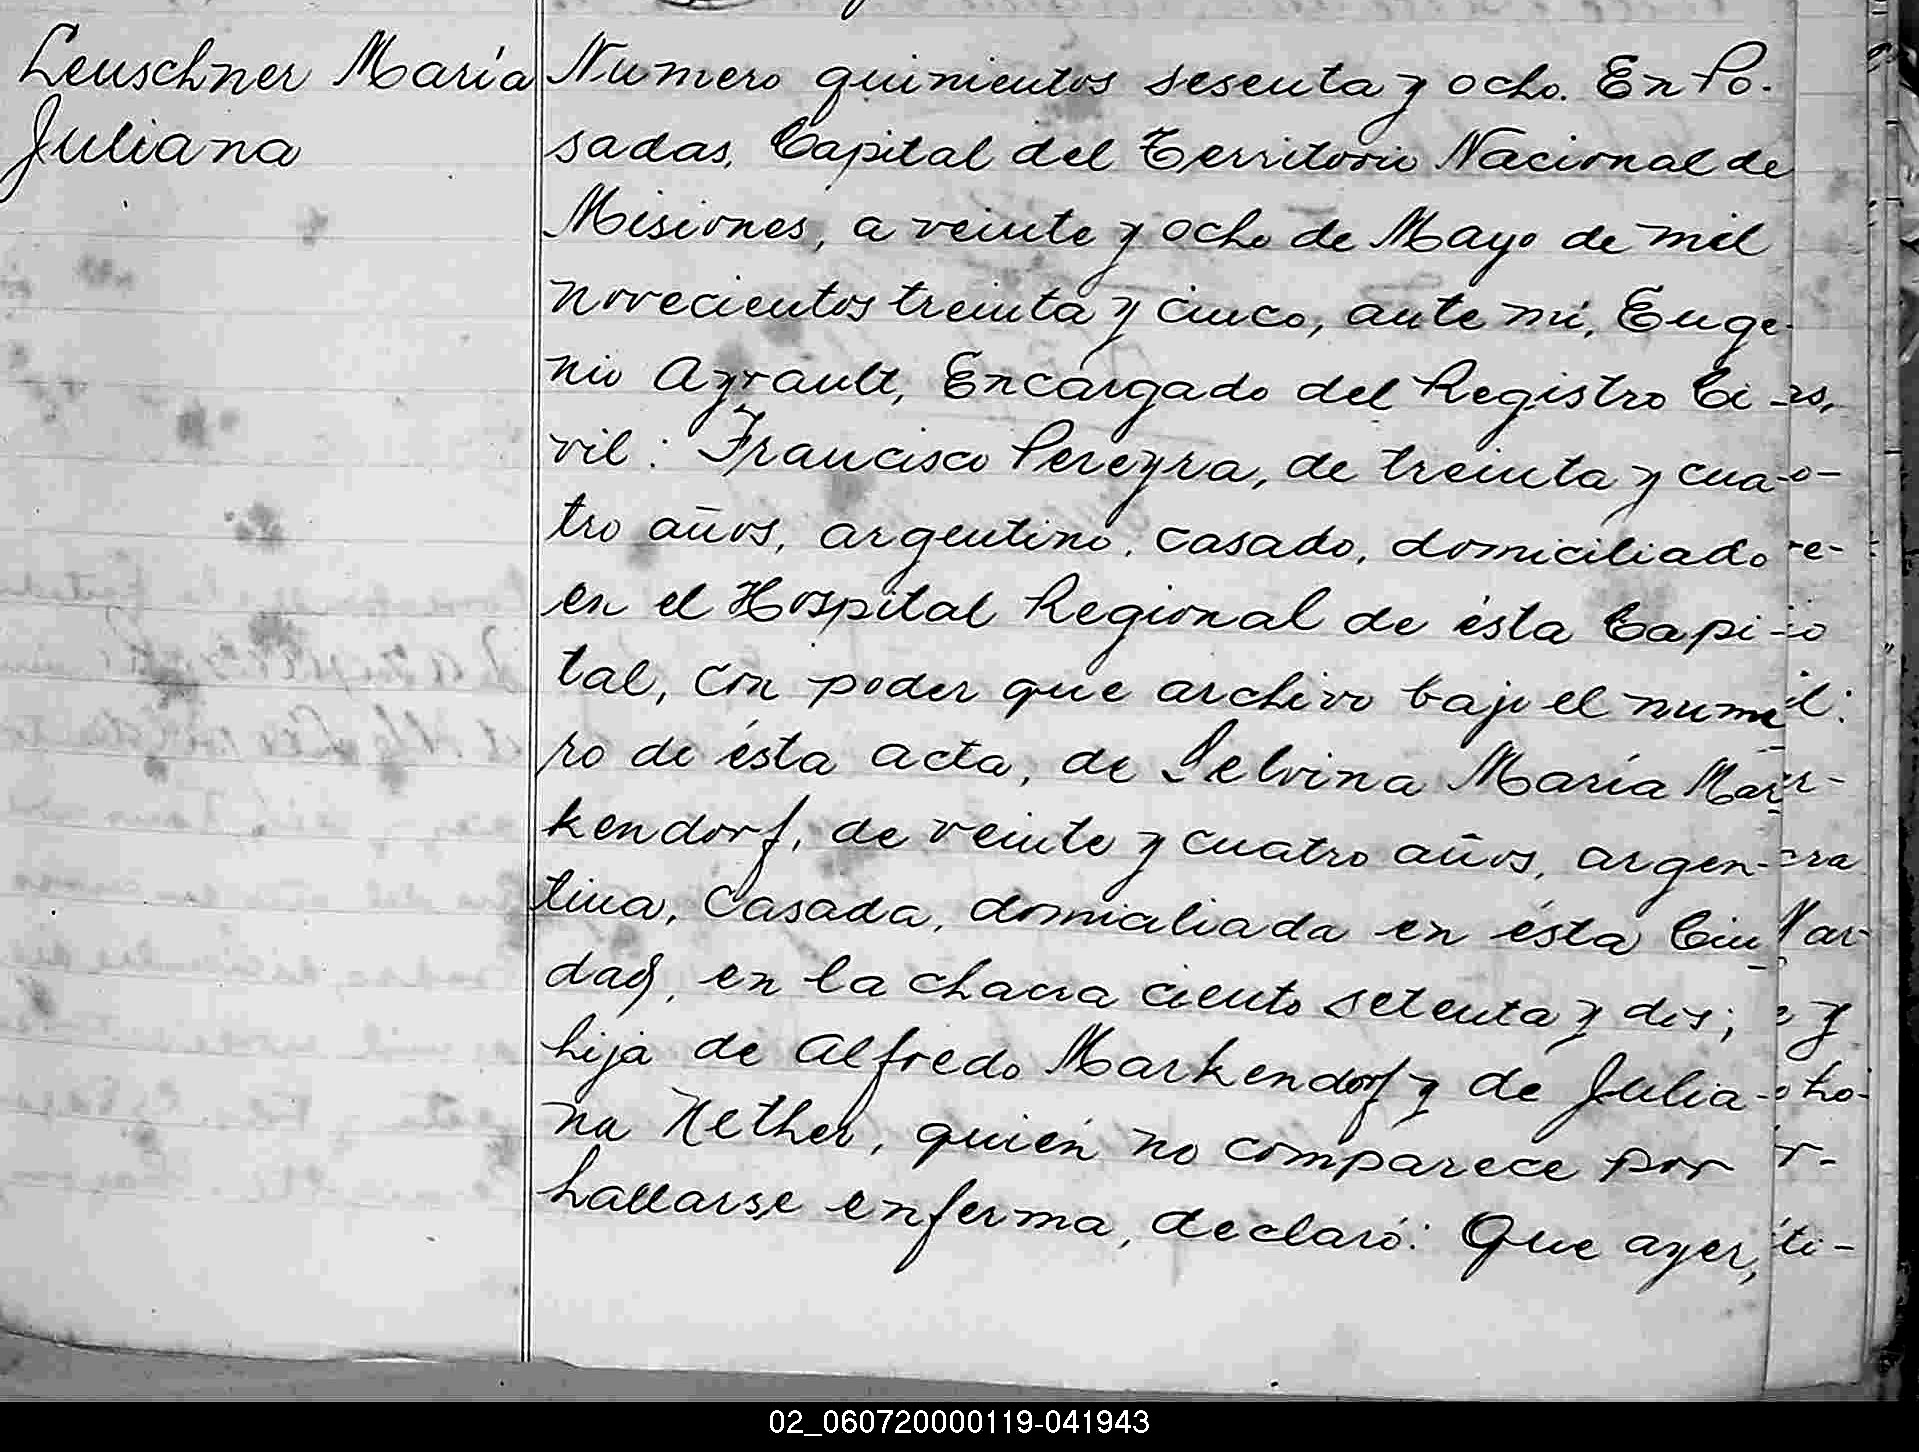 Leuschner María
Juliana
Numero quinientos sesenta y ocho. En Po-
sadas, Capital del Territorio Nacional de
Misiones, a veinte y ocho de Mayo de mil
novecientos treinta y cinco, ante mí, Euge-
nio Ayrault, Encargado del Registro Ci-
vil: Francisco Pereyra, de treinta y cua-
tro años, argentino, casado, domiciliado
en el Hospital Regional de ésta Capi-
tal, con poder que archivo bajo el nume-
ro de ésta acta, de Selvina María Mar-
kendorf, de veinte y cuatro años, argen-
tina, casada, domiciliada en ésta Ciu-
dad, en la chacra ciento setenta y dos;
hija de Alfredo Markendorf y de Julia-
na Nether, quién no comparece por
hallarse enferma, declaró: Que ayer,
02_060720000119-041943